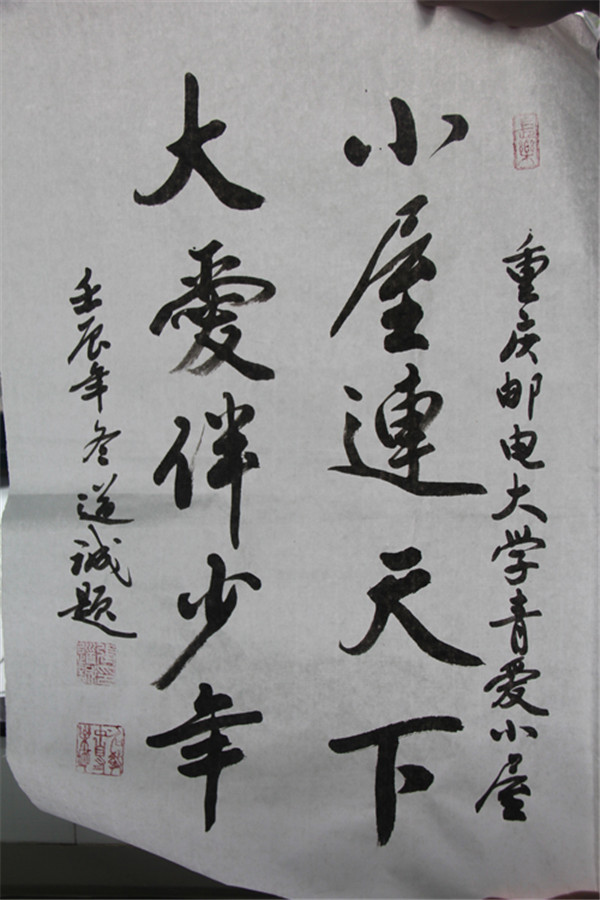 重庆邮电大学青爱小屋
小屋連天下
大愛伴少年
壬辰年冬道诚题